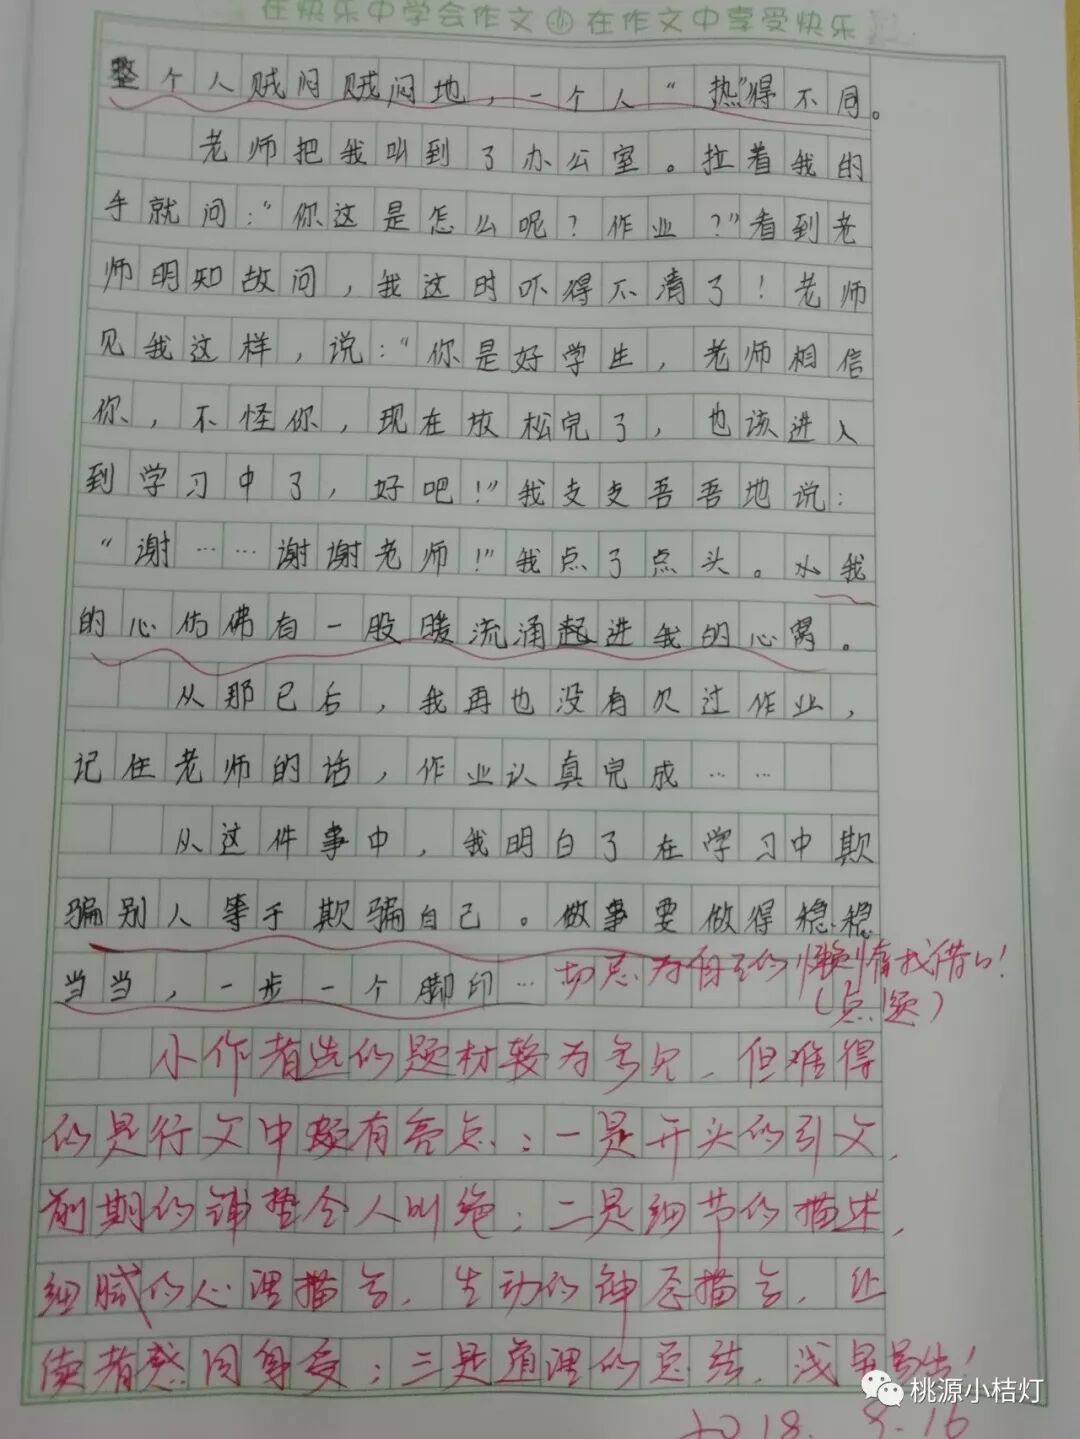 在快乐中学会作文 在作文中享受快乐
整个人贼闷贼闷地，一个人“热”得不同。
老师把我叫到了办公室。拉着我的
手就问：“你这是怎么呢？作业？”看到老
师明知故问，我这时吓得不清了！老师
见我这样，说：“你是好学生，老师相信
你，不怪你，现在放松完了，也该进入
到学习中了，好吧！”我支支吾吾地说：
“谢……谢谢老师！”我点了点头。我
的心仿佛有一股暖流涌起进我的心窝。
从那已后，我再也没有欠过作业，
记住老师的话，作业认真完成……
从这件事中，我明白了在学习中欺
骗别人等于欺骗自己。做事要做得稳稳
当当，一步一个脚印…切忌为自己的懒惰找借口！
（点题）
小作者选的题材较为多见，但难得
的是行文中颇有亮点：一是开头的引文，
前期的铺垫令人叫绝；二是细节的描述，
细腻的心理描写，生动的神态描写，让
读者感同身受；三是道理的总结，浅显易出！
2018.9.16
桃源小桔灯